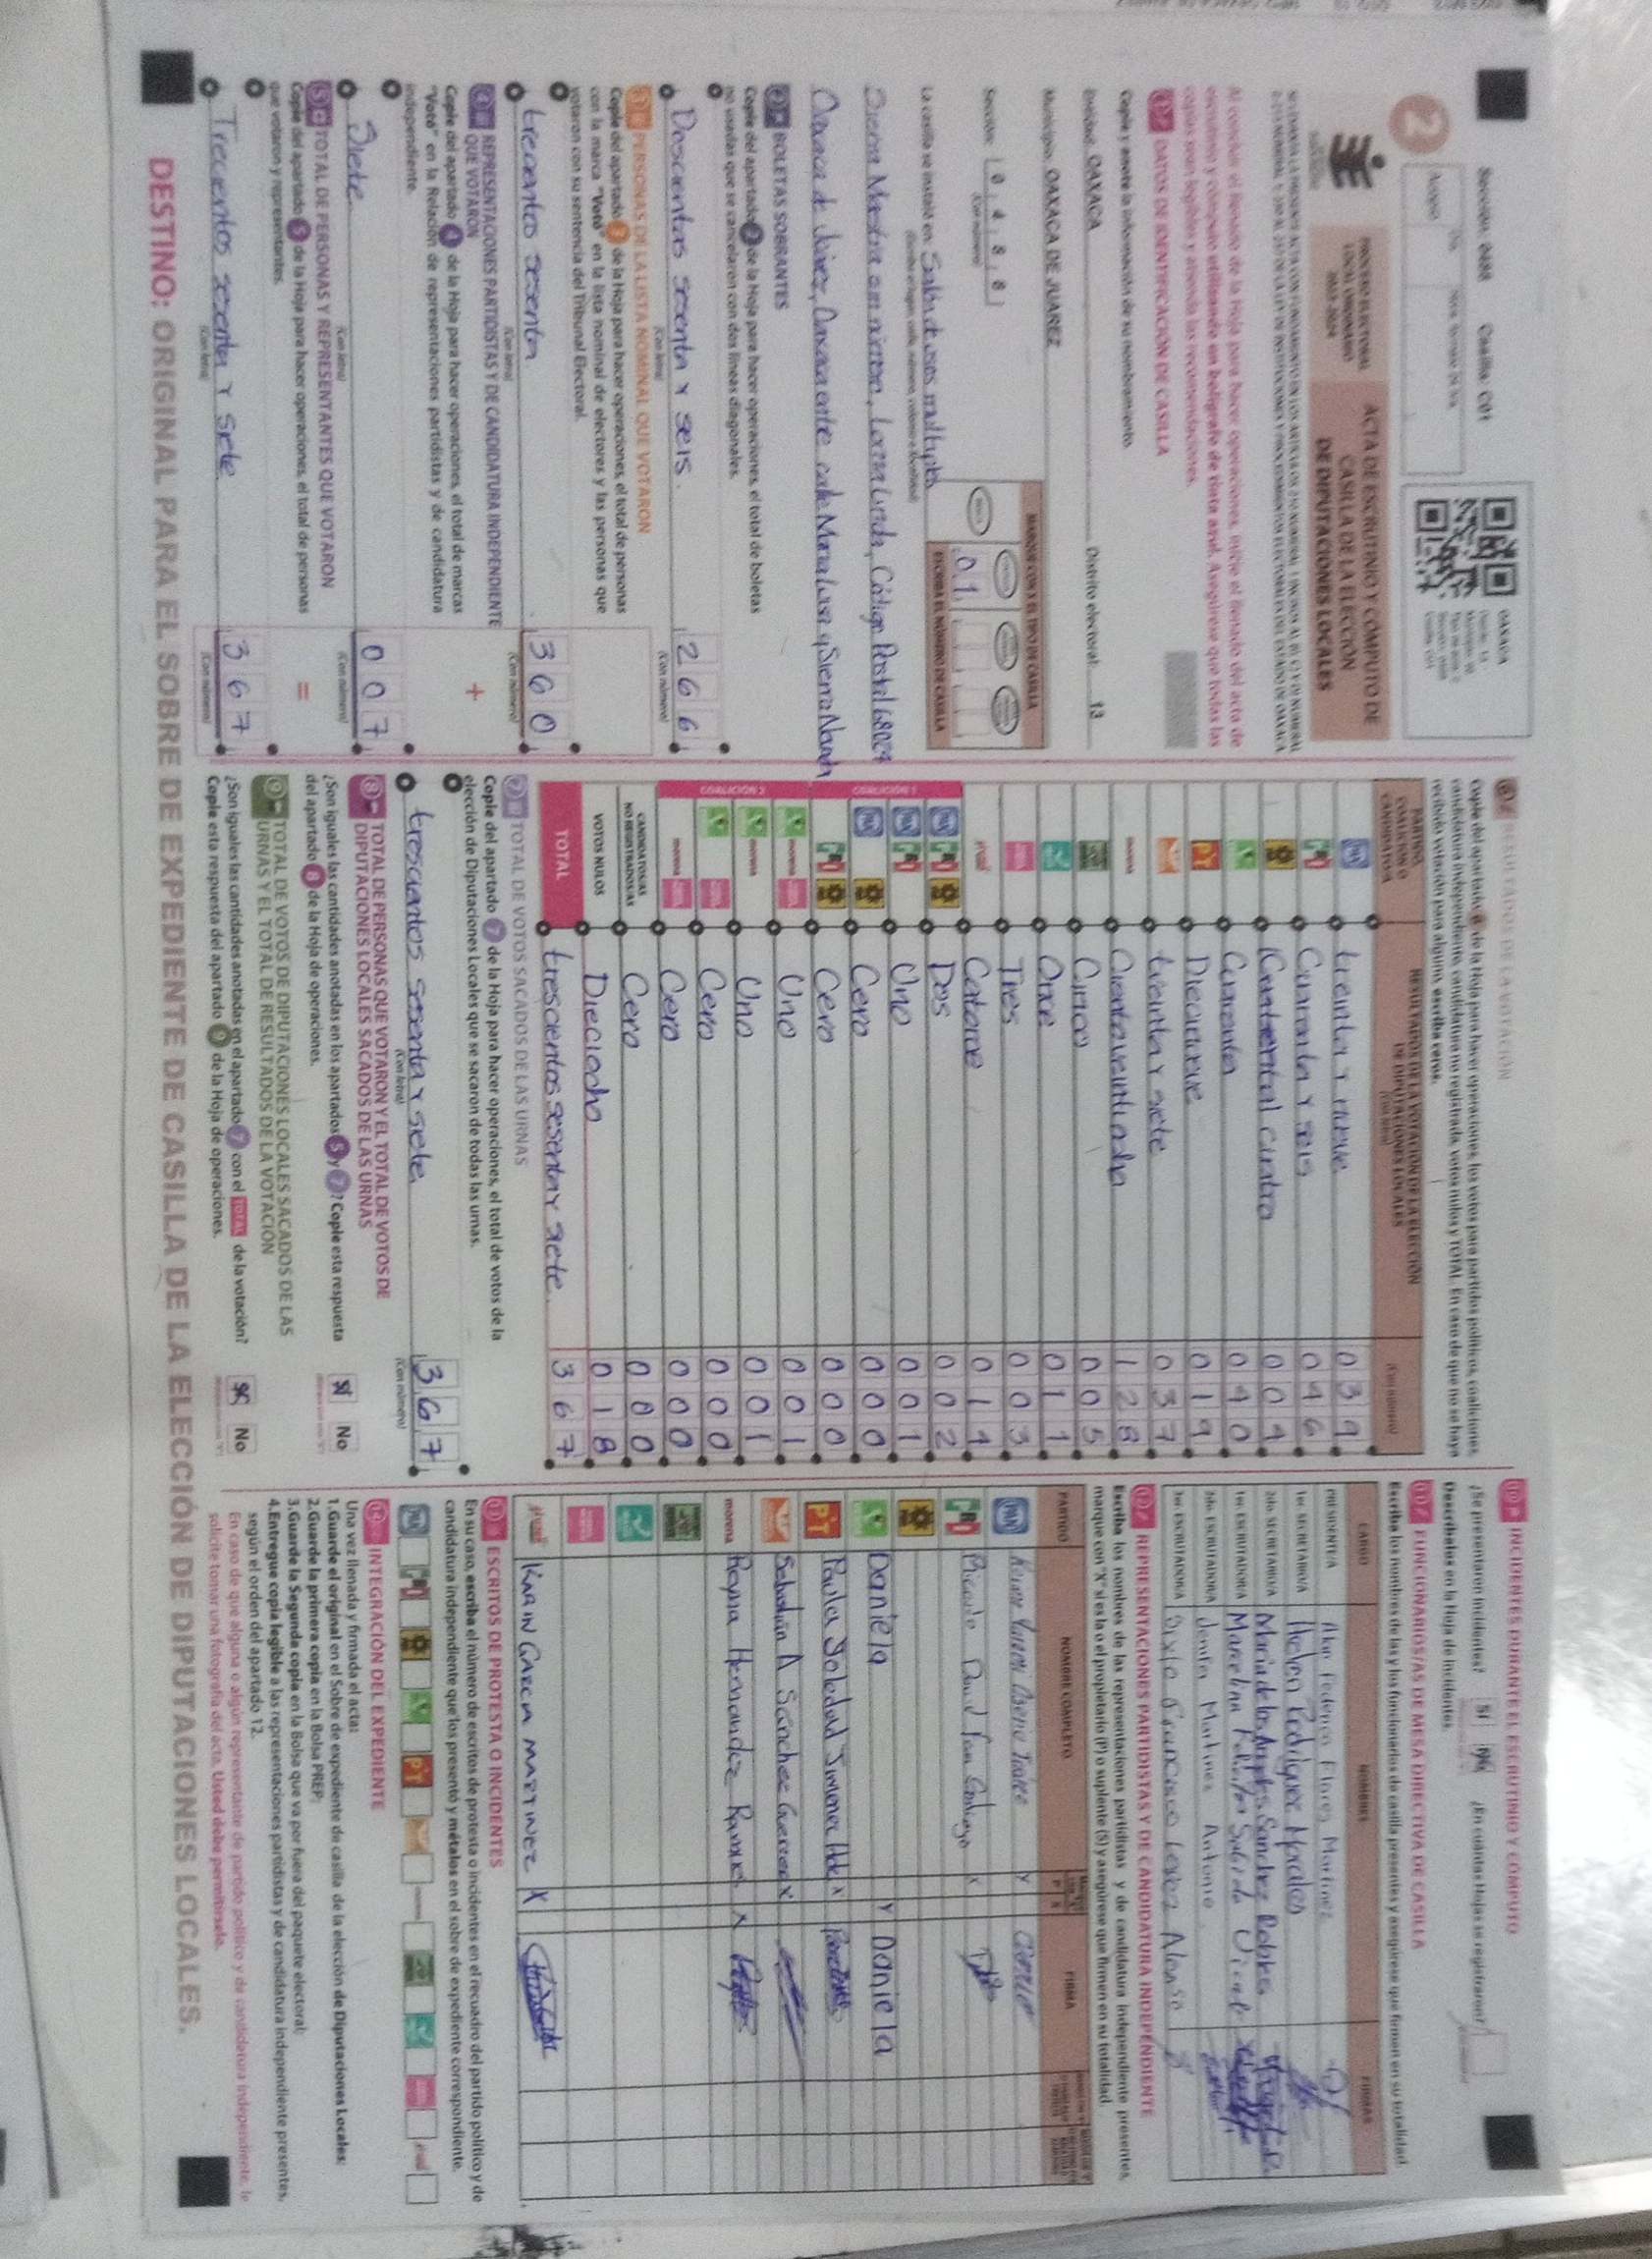 Sección: 0488 Casilla: C01
2
OAXACA
PROCESO ELECTORAL
LOCAL ORDINARIO
2023-2024
ACTA DE ESCRUTINIO Y CÓMPUTO DE
CASILLA DE LA ELECCIÓN
DE DIPUTACIONES LOCALES
Al concluir el llenado de la Hoja para hacer operaciones, inicie el llenado del acta de
escrutinio y cómputo utilizando un bolígrafo de tinta azul. Asegúrese que todas las
copias sean legibles y atienda las recomendaciones.
1 DATOS DE IDENTIFICACIÓN DE CASILLA
Copie y anote la información de su nombramiento.
Entidad: OAXACA Distrito electoral: 13
Municipio: OAXACA DE JUAREZ
Sección: 0488
(Con número)
MARQUE CON X EL TIPO DE CASILLA
ESCRIBA EL NÚMERO DE CASILLA
01
La casilla se instaló en: Salon de usos multiples
(Escriba el lugar, calle, número, colonia o localidad)
Sierra Maestra sin número, Loma Linda, Código Postal 68024
Oaxaca de Juárez, Oaxaca entre calle Maria Luisa y Sierra
2 BOLETAS SOBRANTES
Copie del apartado 2 de la Hoja para hacer operaciones, el total de boletas
no usadas que se cancelaron con dos líneas diagonales.
Doscientos sesenta y seis. 266
(Con letra) (Con número)
3 PERSONAS DE LA LISTA NOMINAL QUE VOTARON
Copie del apartado 3 de la Hoja para hacer operaciones, el total de personas
con la marca "Votó" en la lista nominal de electores y las personas que
votaron con su sentencia del Tribunal Electoral.
trecientos sesenta 360
(Con letra) (Con número)
4 REPRESENTACIONES PARTIDISTAS Y DE CANDIDATURA INDEPENDIENTE
QUE VOTARON
+
Copie del apartado 4 de la Hoja para hacer operaciones, el total de marcas
"Votó" en la Relación de representaciones partidistas y de candidatura
independiente.
Siete 007
(Con letra) (Con número)
5 TOTAL DE PERSONAS Y REPRESENTANTES QUE VOTARON
=
Copie del apartado 5 de la Hoja para hacer operaciones, el total de personas
que votaron y representantes.
Trecientos sesenta y siete 367
(Con letra) (Con número)
6 RESULTADOS DE LA VOTACIÓN
Copie del apartado 6 de la Hoja para hacer operaciones, los votos para partidos políticos, coaliciones,
candidatura independiente, candidatura no registrada, votos nulos y TOTAL. En caso de que no se haya
recibido votación para alguno, escriba ceros.
PARTIDO, COALICIÓN O CANDIDATO/A
RESULTADOS DE LA VOTACIÓN DE LA ELECCIÓN
DE DIPUTACIONES LOCALES
(Con letra) (Con número)
PAN treinta y nueve 039
PRI Cuarenta y seis 046
cuatro 004
Cuarenta 040
PT Diecinueve 019
treinta y siete 037
morena Cientoveintiocho 128
Cinco 005
Once 011
Tres 003
Catorce 014
COALICIÓN 1
PAN PRI Dos 002
PAN PRI Uno 001
PAN Cero 000
PRI Cero 000
COALICIÓN 2
morena Uno 001
morena Uno 001
Cero 000
morena Cero 000
CANDIDATOS/AS NO REGISTRADOS/AS Cero 000
VOTOS NULOS Dieciocho 018
TOTAL trescientos sesenta y siete 367
7 TOTAL DE VOTOS SACADOS DE LAS URNAS
Copie del apartado 7 de la Hoja para hacer operaciones, el total de votos de la
elección de Diputaciones Locales que se sacaron de todas las urnas.
trescientos sesenta y siete 367
(Con letra) (Con número)
8 TOTAL DE PERSONAS QUE VOTARON Y EL TOTAL DE VOTOS DE
DIPUTACIONES LOCALES SACADOS DE LAS URNAS
¿Son iguales las cantidades anotadas en los apartados 5 y 7? Copie esta respuesta
del apartado 8 de la Hoja de operaciones.
Sí No
9 TOTAL DE VOTOS DE DIPUTACIONES LOCALES SACADOS DE LAS
URNAS Y EL TOTAL DE RESULTADOS DE LA VOTACIÓN
¿Son iguales las cantidades anotadas en el apartado 7 con el TOTAL de la votación?
Copie esta respuesta del apartado 9 de la Hoja de operaciones.
Sí No
10 INCIDENTES DURANTE EL ESCRUTINIO Y CÓMPUTO
¿Se presentaron incidentes? Sí No ¿En cuántas Hojas se registraron?
Descríbalos en la Hoja de Incidentes.
11 FUNCIONARIOS/AS DE MESA DIRECTIVA DE CASILLA
Escriba los nombres de las y los funcionarios de casilla presentes y asegúrese que firmen en su totalidad.
CARGO NOMBRES FIRMAS
PRESIDENTE/A Alan Federico Flores Martinez
1er. SECRETARIO/A Helen Rodriguez Morales
2do. SECRETARIO/A Maria de los Angeles Sanchez Robles
1er. ESCRUTADOR/A Marcelina
2do. ESCRUTADOR/A Martinez Antonio
3er. ESCRUTADOR/A Sixto Francisco Lopez Alonso
12 REPRESENTACIONES PARTIDISTAS Y DE CANDIDATURA INDEPENDIENTE
Escriba los nombres de las representaciones partidistas y de candidatura independiente presentes,
marque con "X" si es la o el propietario (P) o suplente (S) y asegúrese que firmen en su totalidad.
PARTIDO NOMBRE COMPLETO FIRMA
PAN
PRI Ricardo David
Daniela Daniela
PT Paula Soledad Jimenez X
Sebastián A Sanchez Guerrero X
morena Reyna Hernandez Ramirez X
KARIN GARCIA MARTINEZ X
13 ESCRITOS DE PROTESTA O INCIDENTES
En su caso, escriba el número de escritos de protesta o incidentes en el recuadro del partido político y de
candidatura independiente que los presentó y métalos en el sobre de expediente correspondiente.
14 INTEGRACIÓN DEL EXPEDIENTE
Una vez llenada y firmada el acta:
1.Guarde el original en el Sobre de expediente de casilla de la elección de Diputaciones Locales;
2.Guarde la primera copia en la Bolsa PREP;
3.Guarde la Segunda copia en la Bolsa que va por fuera del paquete electoral;
4.Entregue copia legible a las representaciones partidistas y de candidatura independiente presentes,
según el orden del apartado 12.
En caso de que alguna o algún representante de partido político y de candidatura independiente, le
solicite tomar una fotografía del acta, Usted debe permitírselo.
DESTINO: ORIGINAL PARA EL SOBRE DE EXPEDIENTE DE CASILLA DE LA ELECCIÓN DE DIPUTACIONES LOCALES.